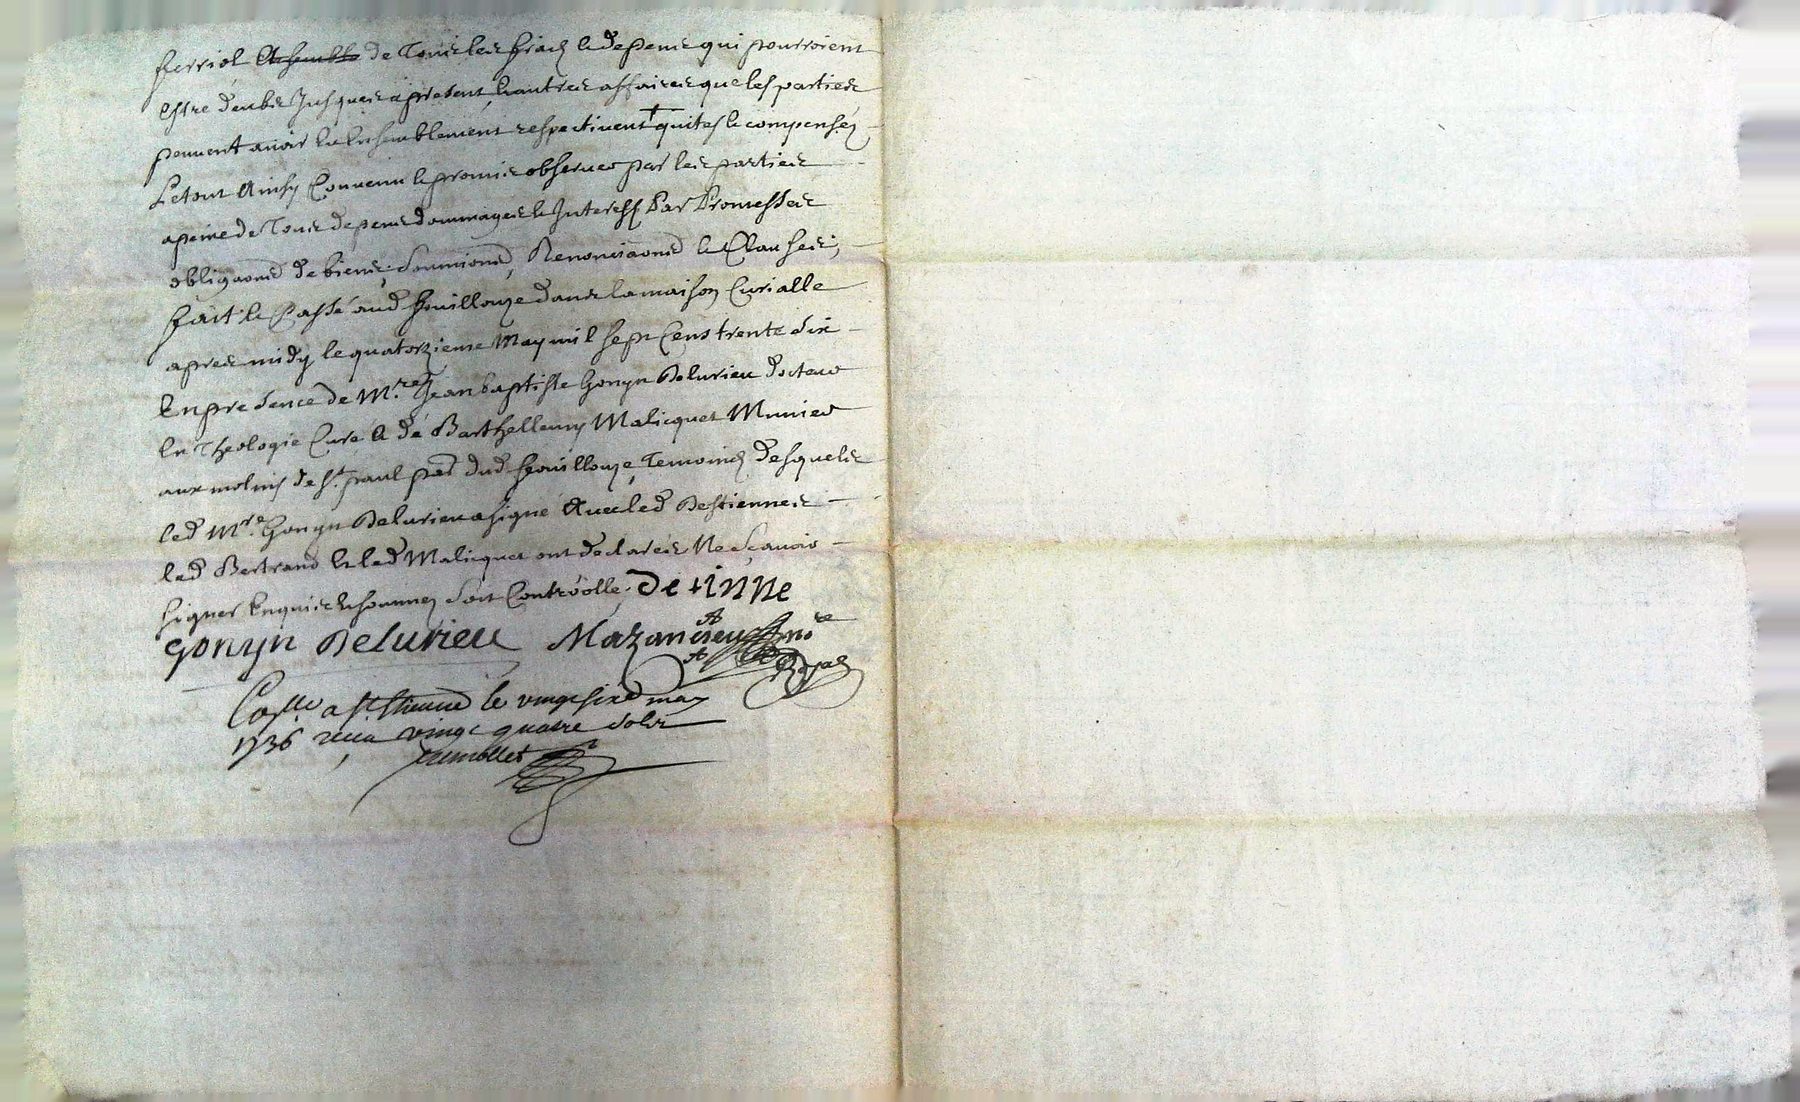 ferriol Ensemble de Tous les frais & depens qui pourroient
estre deubs Jusques apresent, & autres affaires que les parties
peuvent avoir eu Ensemblement respectivent + quites & compensés
Le tout Ainsy Convenu & promis observer par les parties
apeine de Tous depens dommages & Interest Par Promesses
obligaons de biens, Soumions, Renonciaons & Clauses,
fait & Passé aud fouillouze dans la maison Curialle
apres midy le quatorzieme May mil sept Cens trente Six
En presence de Mre Jean baptiste Gonyn Delurieu docteur
En Theologie Curé & de Barthellemy Malicquet Munier
aux molins de st paul pes dud fouillouze, Temoins desquels
led Mre Gonyn Delurieu a signé Avec led Destiennes
lad Bertrand & led Malicquet ont declarés Ne Sçavoir
signer Enquis & sommés Soit Controolle, De tinne
Gonyn Delurieu Mazancieu no.re
Royal
Co.lle a st Etienne le vingt six may
1736 receu vingt quatre sols